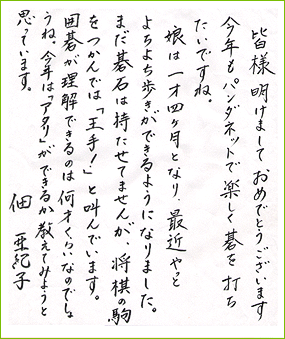 皆様明けましておめでとうございます
今年もパンダネットで楽しく碁を打ち
たいですね。
娘は一才四ヶ月となり、最近やっと
よちよち歩きができるようになりました。
まだ碁石は持たせてませんが、将棋の駒
をつかんでは「王手!」と叫んでいます。
囲碁が理解できるのは何才くらいなのでしょ
うね、今年は「アタリ」ができるか教えてみようと
思っています。
佃 亜紀子